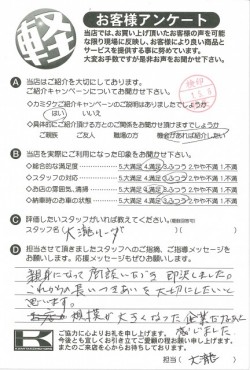 軽
お客様アンケート
当店では、お買い上げ頂いたお客様の声を可能
な限り現場に反映し、お客様により良い商品と
サービスを提供する事に努めています。
大変お手数ですが是非お声をお聞かせ下さい。
A 当店はご紹介を大切にしております。
ご紹介キャンペーンについてお聞かせ下さい。
◇カミタケご紹介キャンペーンのご説明はありましたでしょうか
はい いいえ
◇具体的にご紹介頂ける方とのご関係をお聞かせ頂けますでしょうか
ご親族 ご友人 職場の方 機会があれば紹介したい
B 当店を実際にご利用になった印象をお聞かせ下さい。
◇総合的な満足度 5.大満足 4.満足 3.ふつう 2.やや不満 1.不満
◇スタッフの対応 5.大満足 4.満足 3.ふつう 2.やや不満 1.不満
◇お店の雰囲気、清掃 5.大満足 4.満足 3.ふつう 2.やや不満 1.不満
◇納車時のお車の状態 5.大満足 4.満足 3.ふつう 2.やや不満 1.不満
C 評価したいスタッフがいれば教えてください。
スタッフ名( 大瀧リーダ )
D 担当させて頂きましたスタッフへのご指摘、ご指導メッセージを
お願いします。応援メッセージもぜひお願いします。
親身になって 即決しました。
これからの長いつきあいを大切にしたいと
思います。
規模が大きくなった企業だなあと
感じました
ご協力に心よりお礼を申し上げます。
今後とも宜しくお引き立てご愛顧の程お願い申し上げます
またのご来店を心からお待ちしております。
担当( 大瀧 )